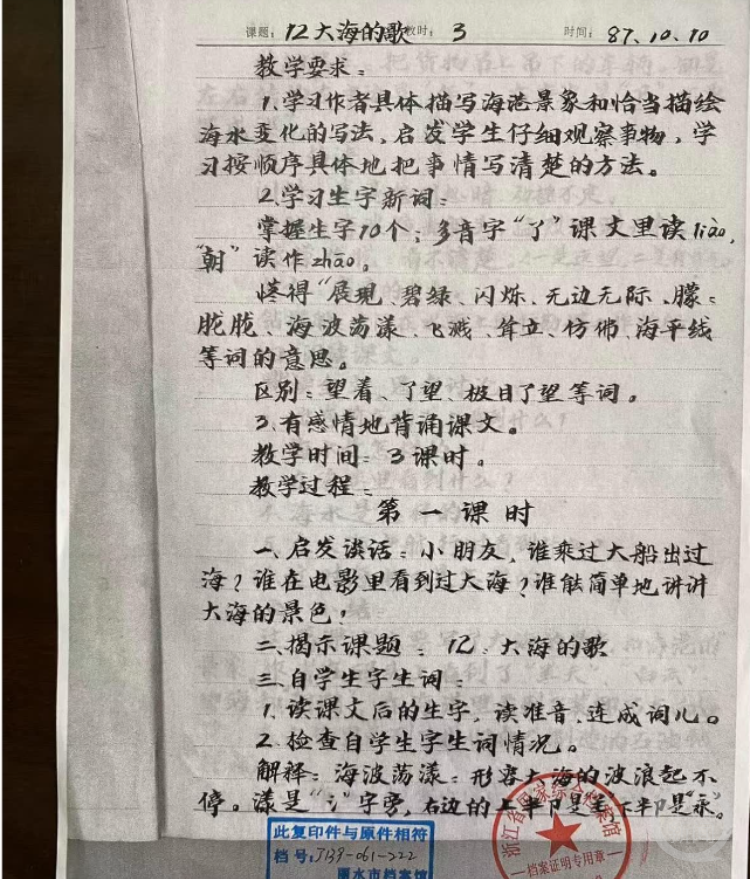 课题：12大海的歌 教时：3 时间：87.10.10
教学要求：
1.学习作者具体描写海港景象和恰当描绘
海水变化的写法，启发学生仔细观察事物，学
习按顺序具体地把事情写清楚的方法。
2.学习生字新词：
掌握生字10个；多音字“了”课文里读liào，
“朝”读作zhāo。
懂得“展现、碧绿、闪烁、无边无际、朦：
胧胧、海波荡漾、飞溅、耸立、仿佛、海平线
等词的意思。
区别：望着、了望、极目了望等词。
3.有感情地背诵课文。
教学时间：3课时。
教学过程：
第一课时
一、启发谈话：小朋友，谁乘过大船出过
海？谁在电影里看到过大海？谁能简单地讲讲
大海的景色！
二、揭示课题：12、大海的歌
三、自学生字生词：
1.读课文后的生字，读准音，连成词儿。
2.检查自学生字生词情况。
解释：海波荡漾：形容大海的波浪起不
停。漾是“氵”字旁，右边的上半卩是羊下半卩是“永”。
此复印件与原件相符
档号：J139-061-222
丽水市档案馆
浙江省国家综合档案馆
档案证明专用章